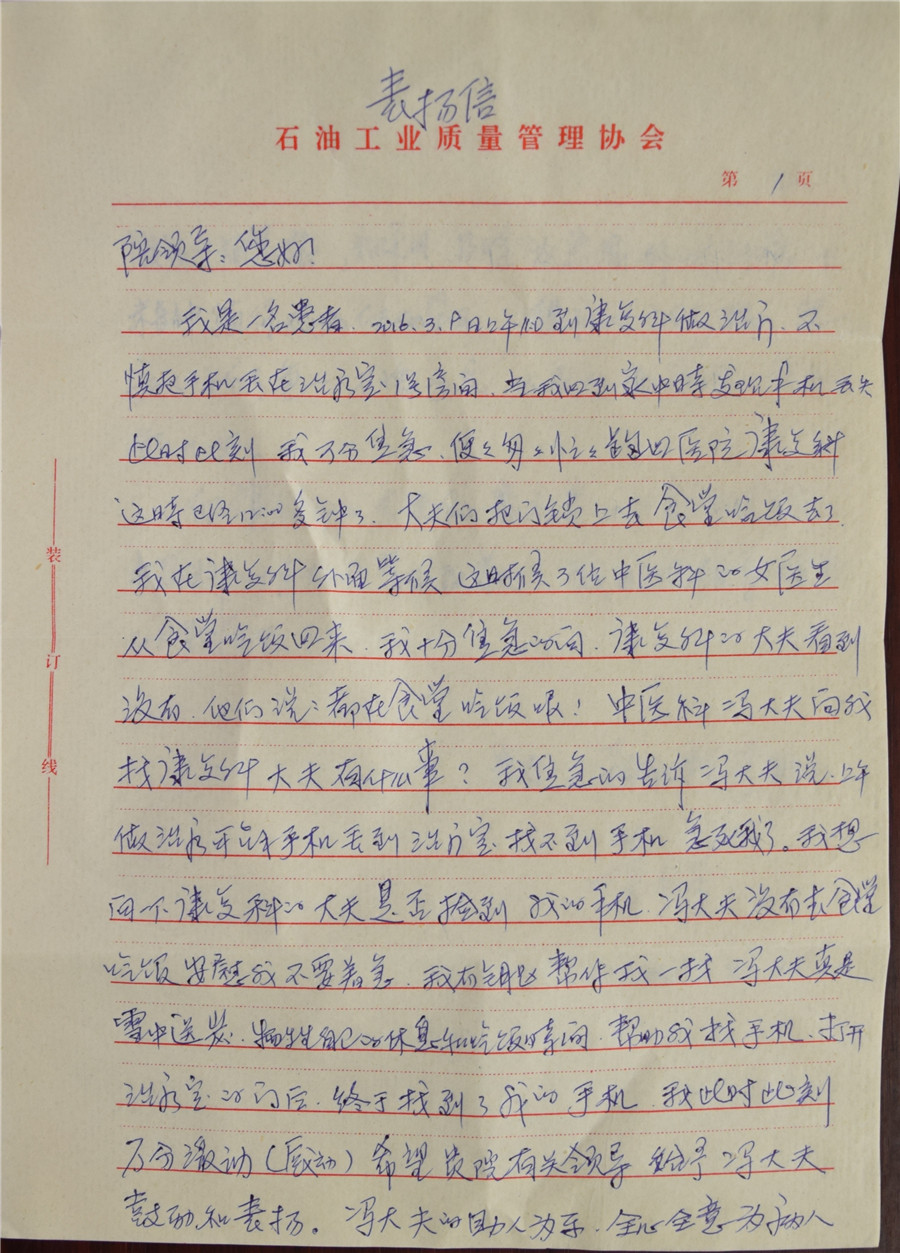 表扬信
石油工业质量管理协会
第 1 页
院领导:您好!
我是一名患者.2016.3.9日上午10到康复科做治疗.不
慎把手机丢在治疗室1号房间.当我回到家中时发现手机丢失
此时此刻 我万分焦急、便匆匆回医院康复科
这时已经12:00多钟了.大夫们把门锁上去食堂吃饭去了.
我在康复科外面等候 这时候3位中医科的女医生
从食堂吃饭回来.我十分焦急的问.康复科的大夫看到
没有.他们说:都在食堂吃饭呢!中医科冯大夫问我
找康复科大夫有什么事?我焦急的告诉冯大夫说.上午
做治疗可能手机丢到治疗室.找不到手机 急死我了。我想
问一下康复科的大夫是否捡到我的手机.冯大夫没有去食堂
吃饭 安慰我不要着急.我有钥匙帮你找一找 冯大夫真是
雪中送炭.牺牲自己的休息和吃饭时间.帮助我找手机.打开
治疗室的门后.终于找到了我的手机.我此时此刻
万分激动(感动)希望贵院有关领导给予冯大夫
鼓励和表扬。冯大夫的助人为乐.全心全意为病人
装
订
线